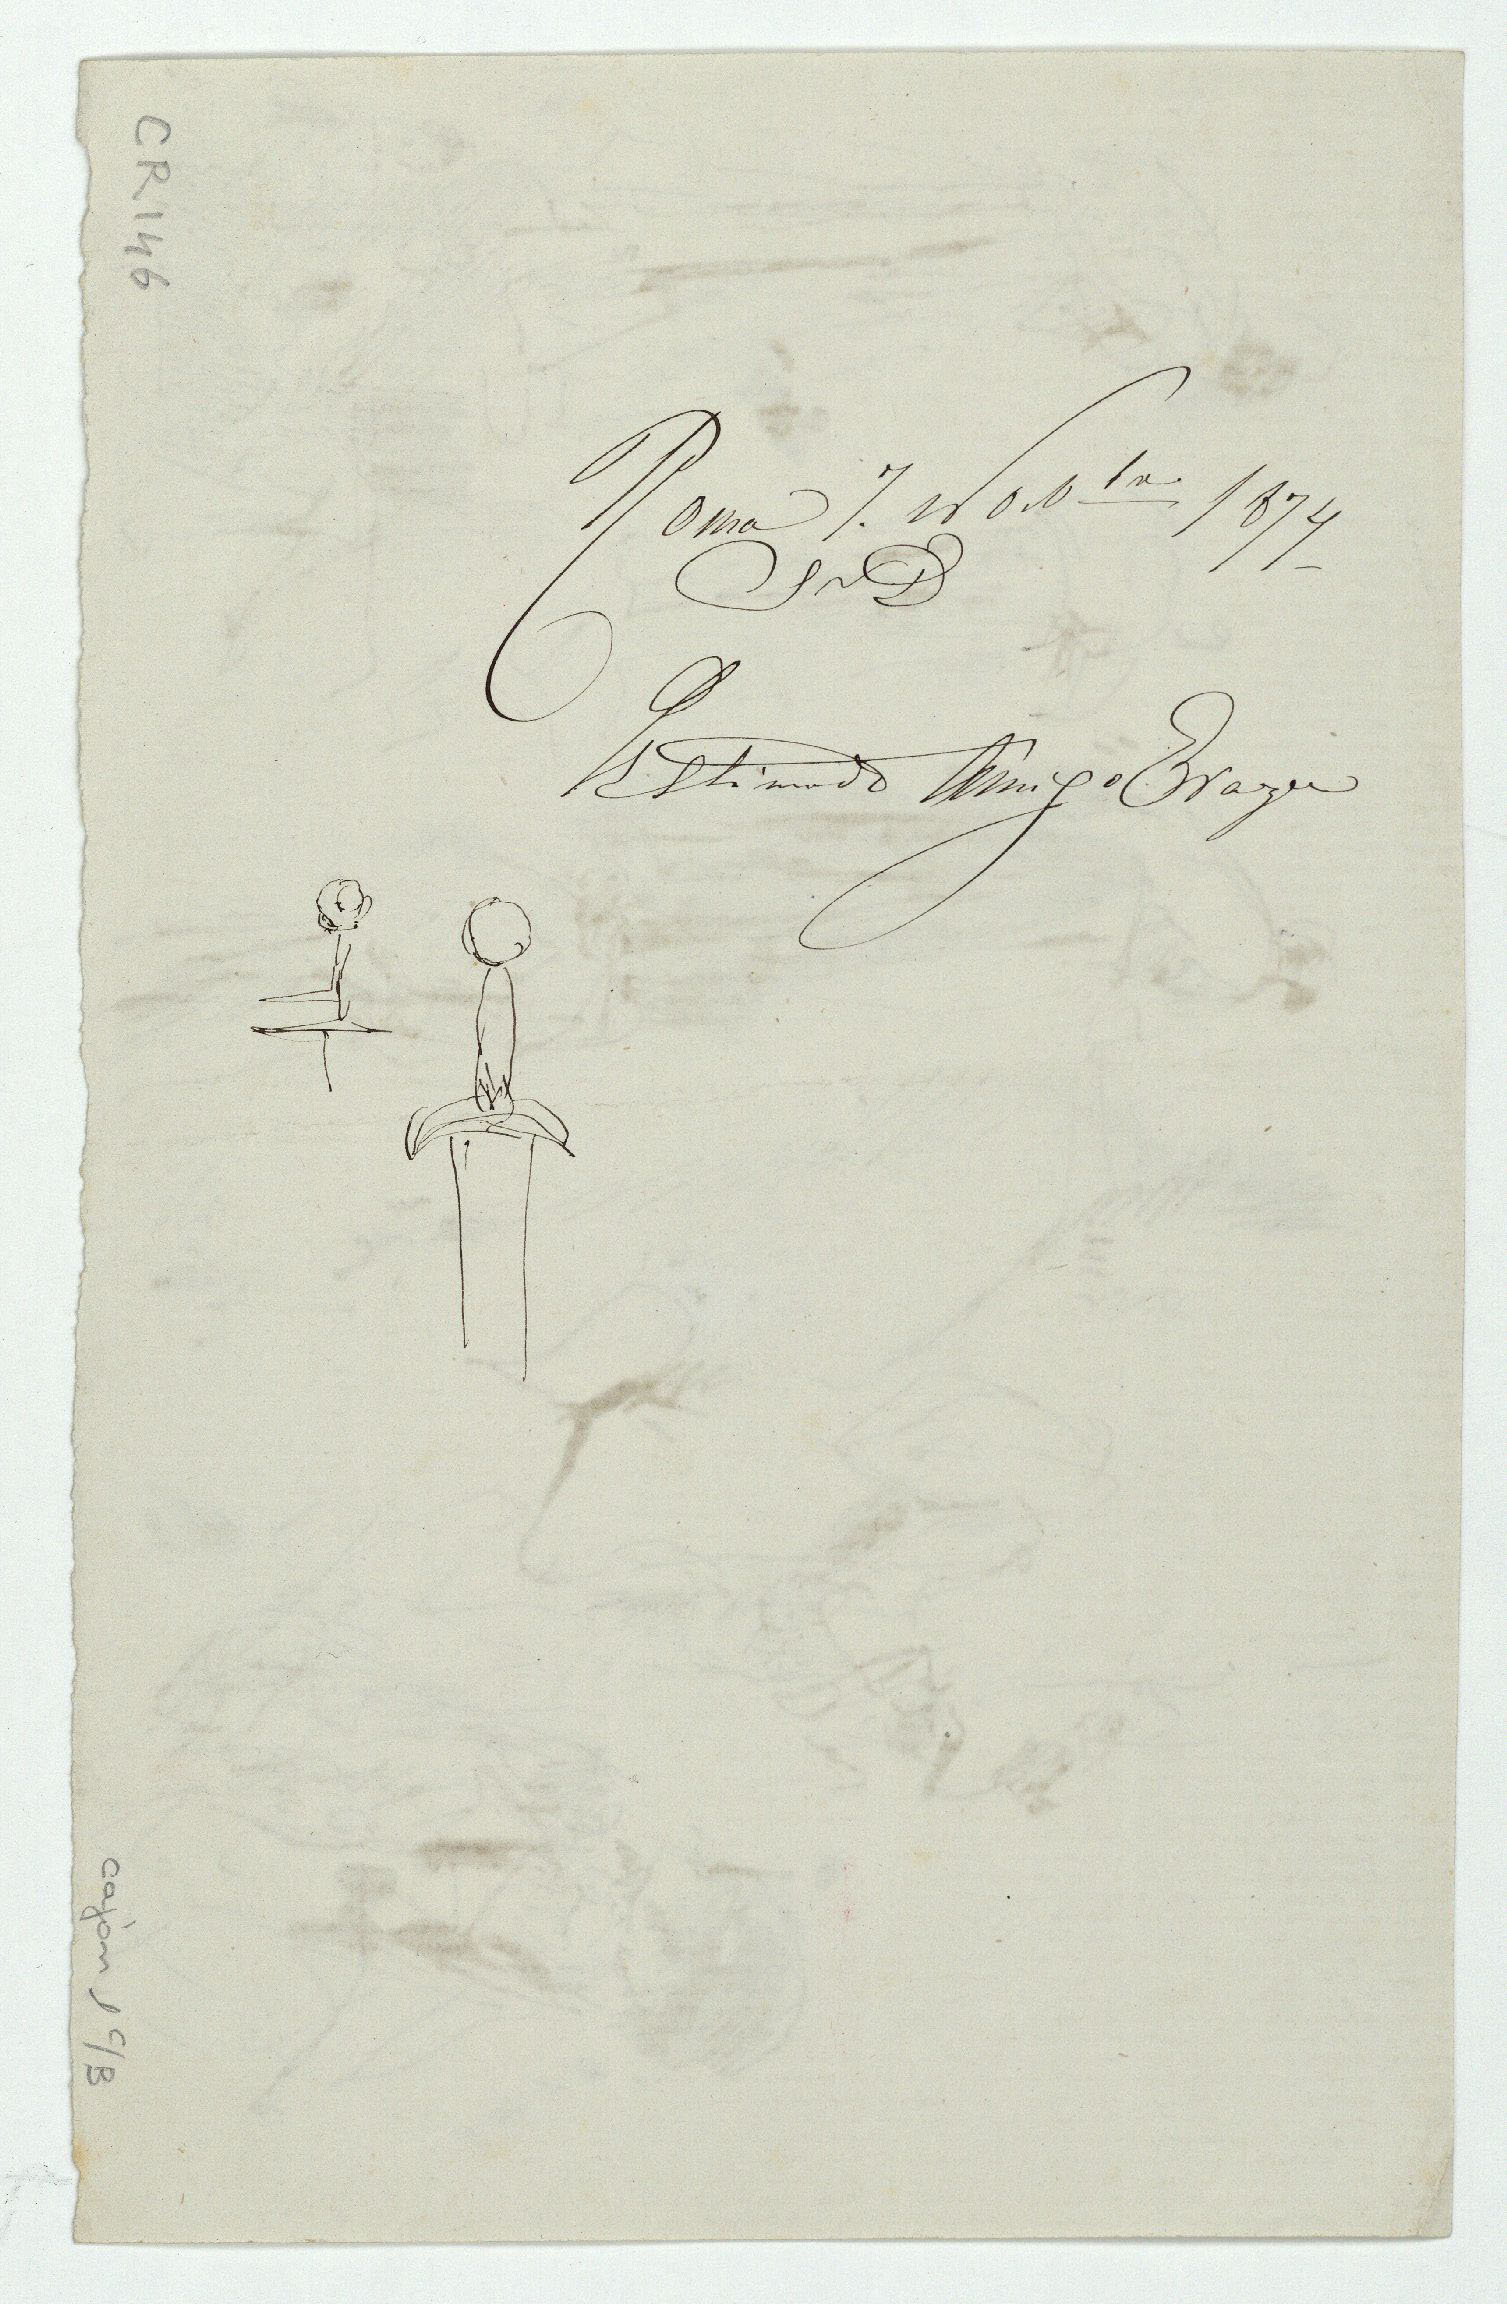 CR146
Roma 7. Nov bre 1874
Sr D
Estimado Amigo
cajón 1 C/B